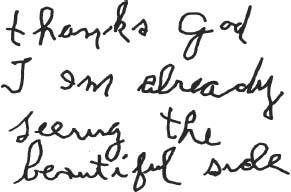 thanks God
I em already
seeing the
beautiful side